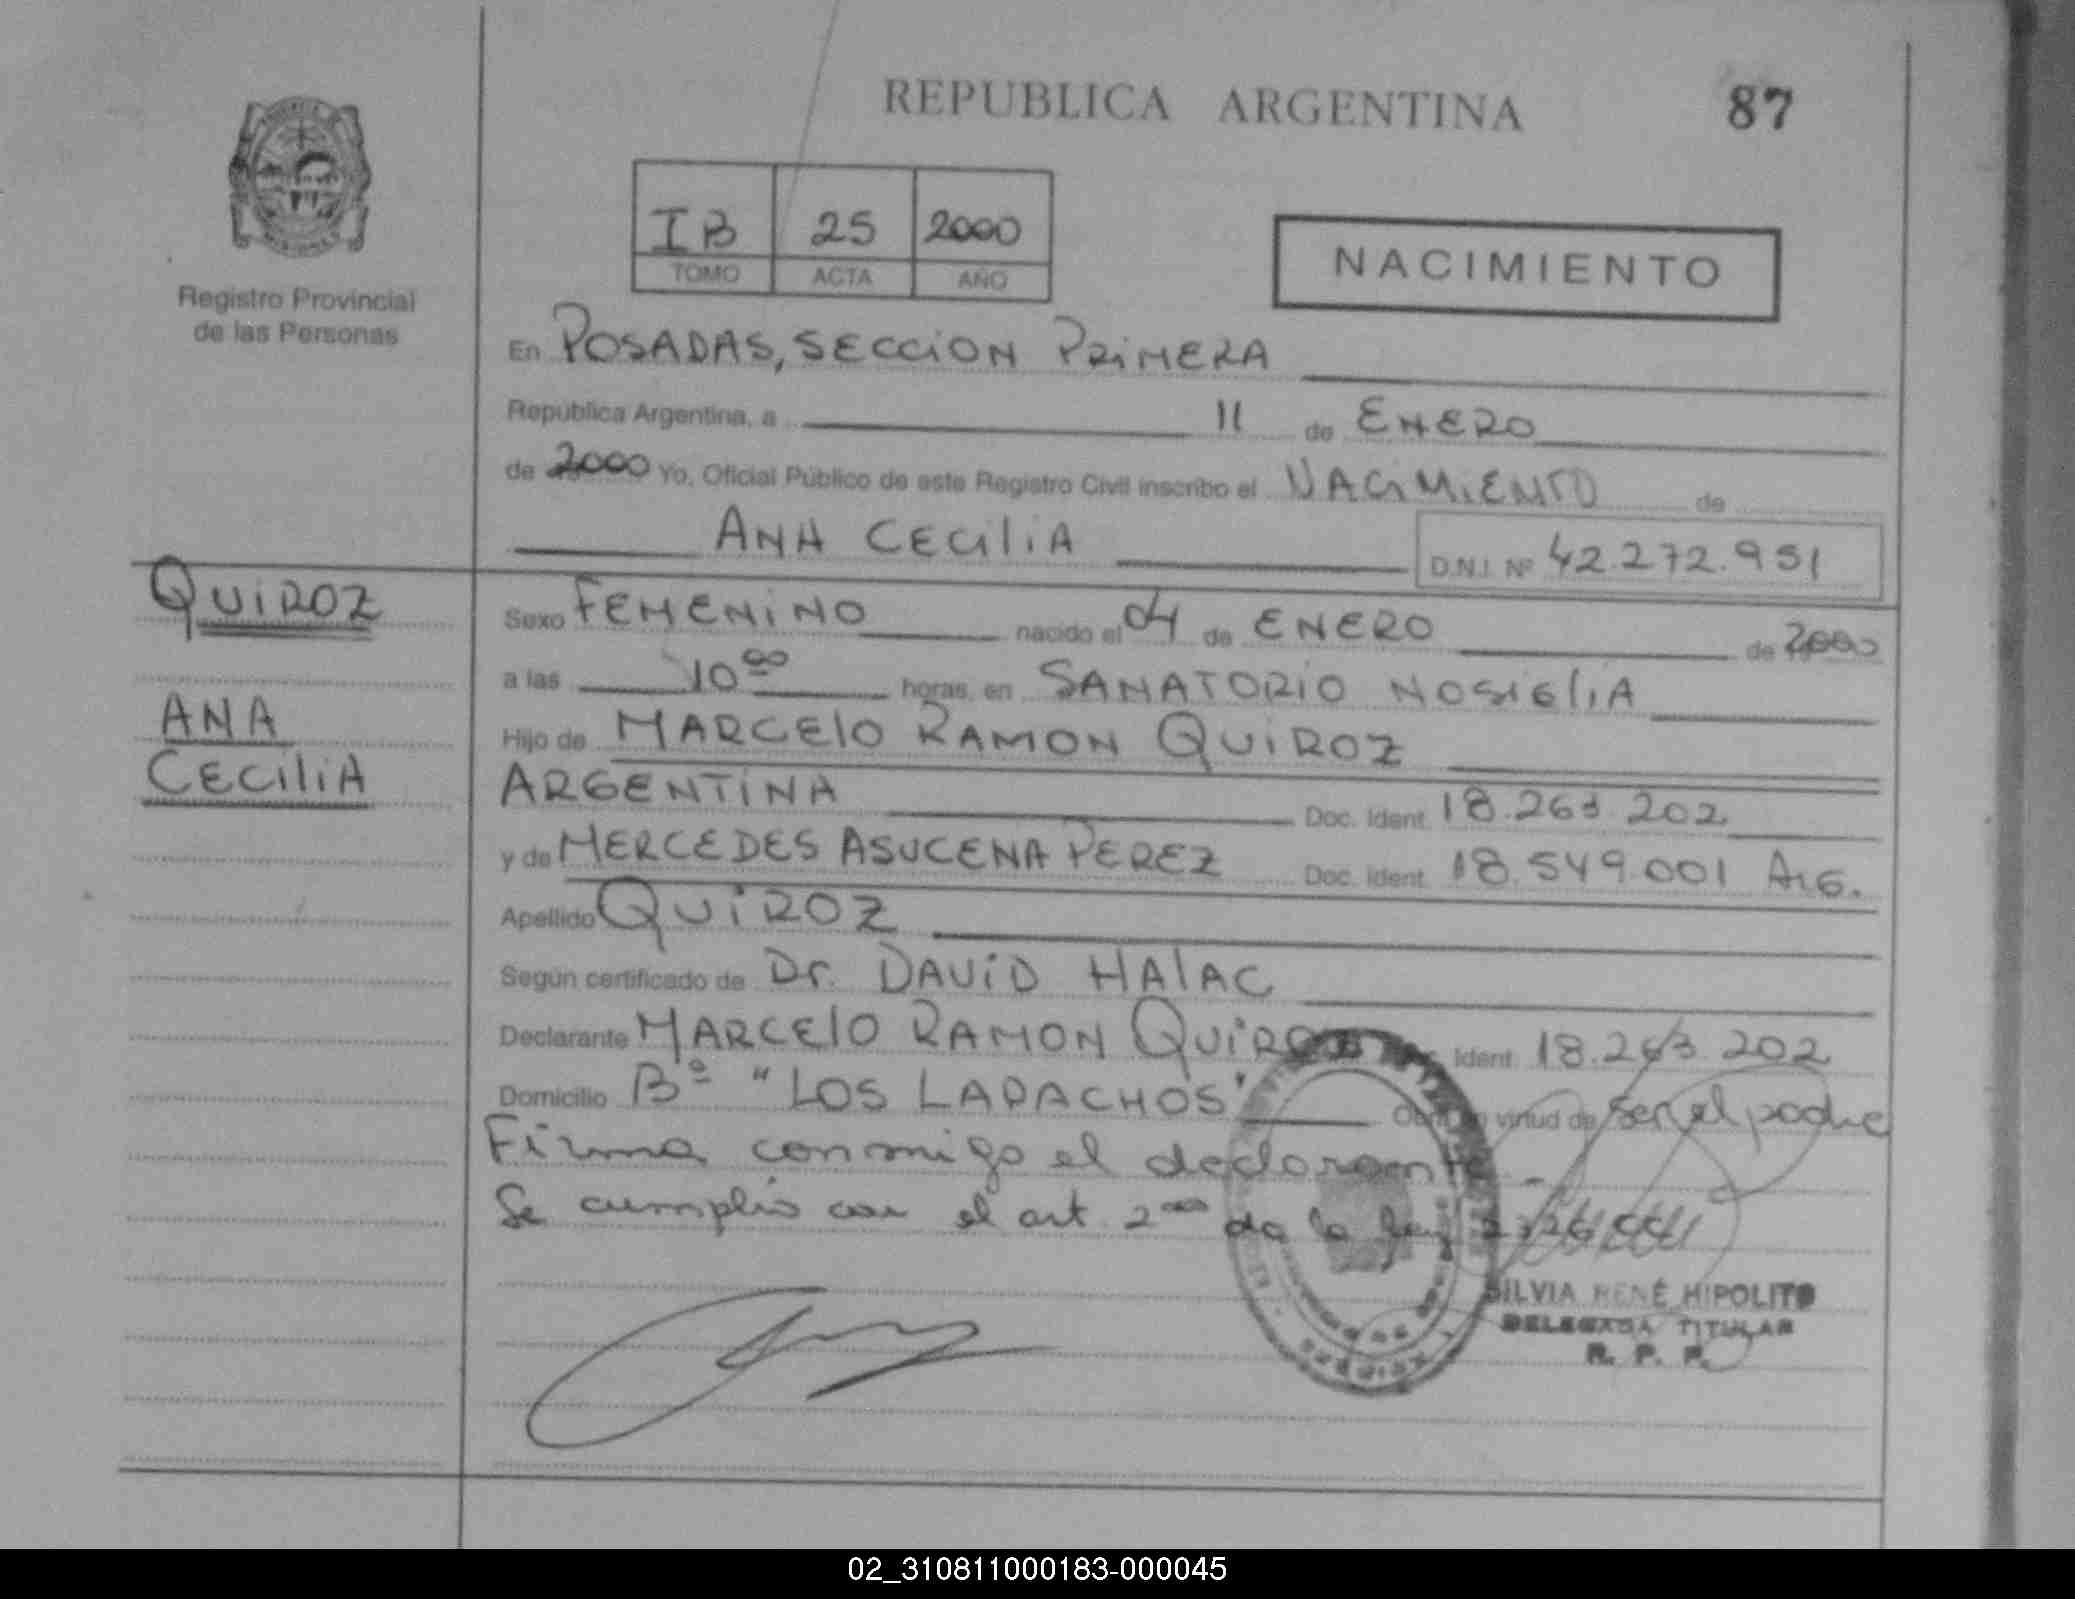 REPUBLICA ARGENTINA 87
Registro Provincial
de las Personas
IB 25 2000
TOMO ACTA AÑO
NACIMIENTO
En POSADAS, SECCION PRIMERA
República Argentina, a 11 de ENERO
de 2000 Yo, Oficial Público de este Registro Civil inscribo el NACIMIENTO de
ANA CECILIA D.N.I. Nº 42.272.951
QUIROZ
ANA
CECILIA
Sexo FEMENINO nacido el 04 de ENERO de 2000
a las 10 00 horas, en SANATORIO NOSIGLIA
Hijo de MARCELO RAMON QUIROZ
ARGENTINA Doc. Ident. 18.263.202
y de MERCEDES ASUCENA PEREZ Doc. Ident. 18.549.001 Arg.
Apellido QUIROZ
Según certificado de Dr. DAVID HALAC
Declarante MARCELO RAMON QUIROZ Ident. 18.263.202
Domicilio Bº "LOS LAPACHOS" virtud de ser el padre
Firma conmigo el declarante
Se cumplió con el art. 2 de la ley
SILVIA RENÉ HIPOLITO
DELEGADA TITULAR
R. P. P.
02_310811000183-000045